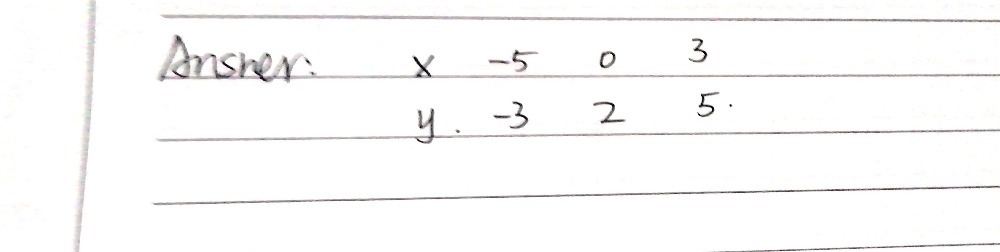 Answer: x -5 0 3
y. -3 2 5.